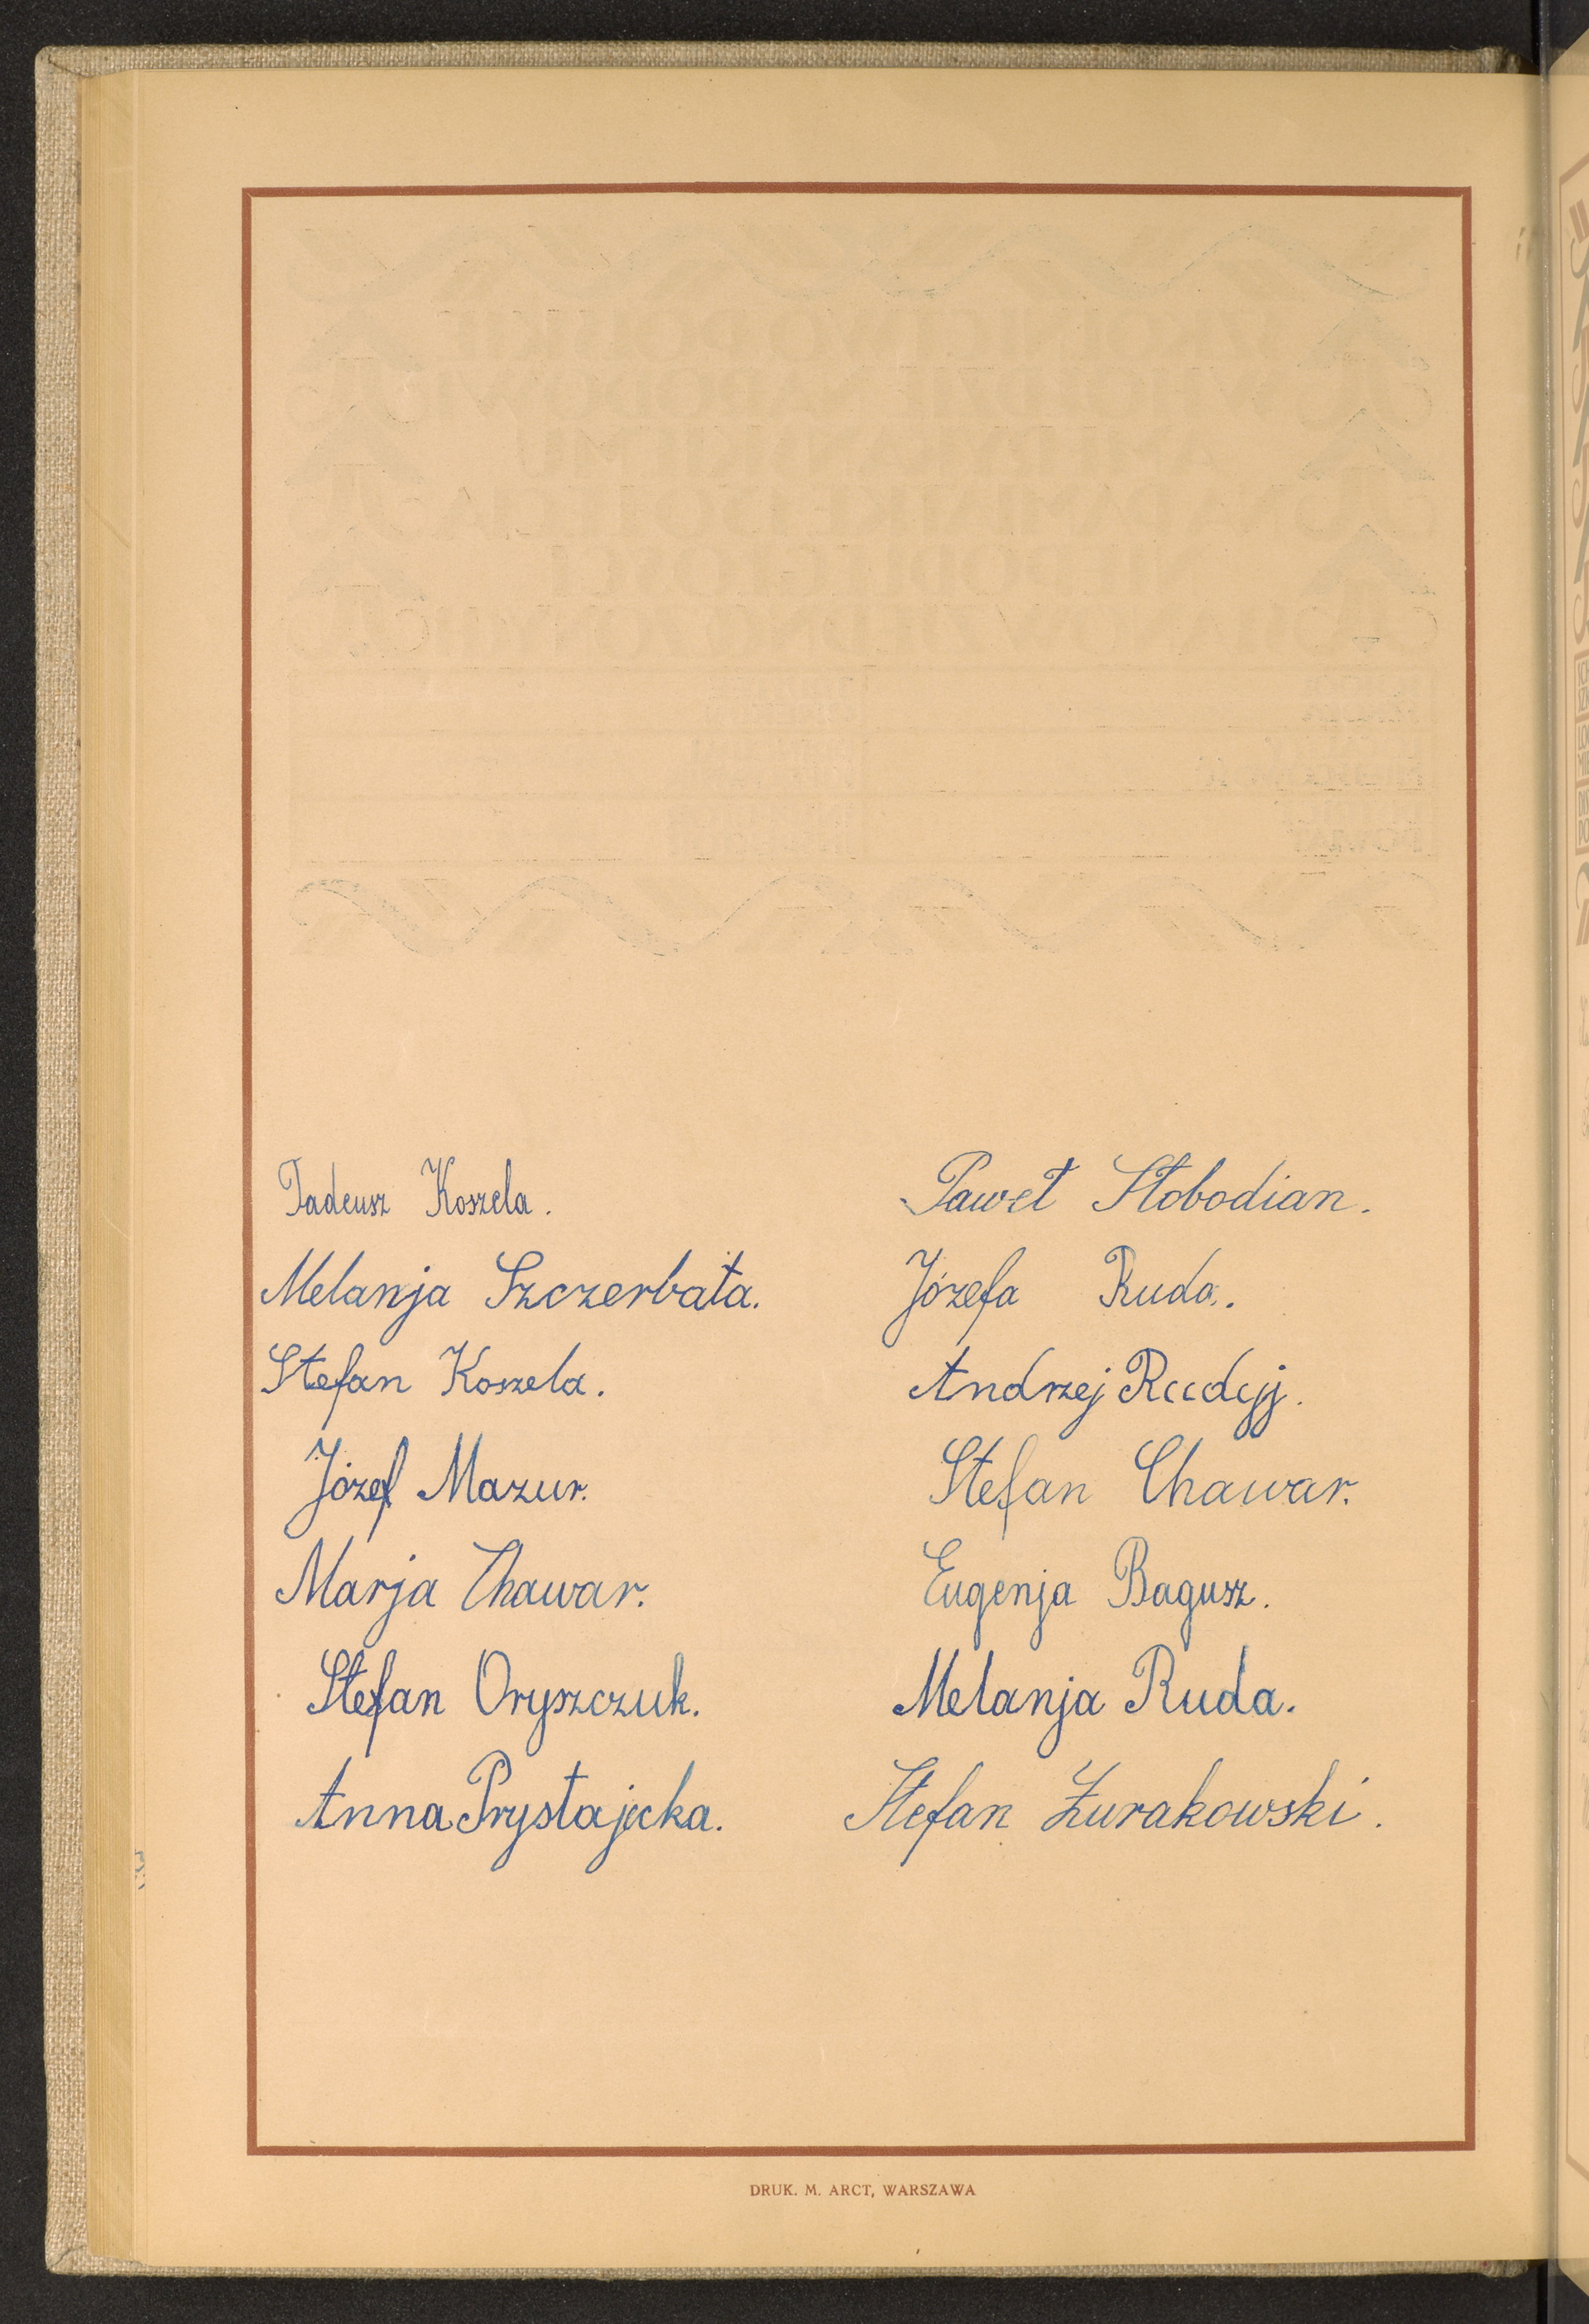 Tadeusz Koszela.
Melanja Szczerbata.
Stefan Koszela.
Józef Mazur.
Marja Chawar.
Stefan Oryszczuk.
Anna Prystajecka.
Paweł Słobodian.
Józefa Ruda.
Andrzej Rudyj.
Stefan Chawar.
Eugenja Bagusz.
Melanja Ruda.
Stefan Żurakowski.
DRUK. M. ARCT, WARSZAWA